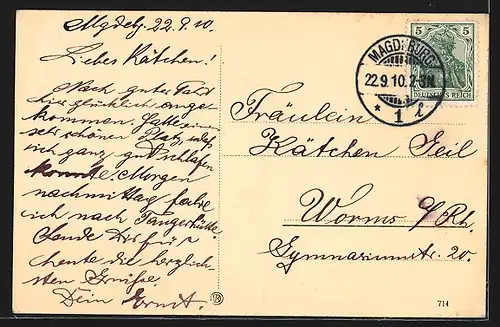 Magdebg. 22.9.10.
Liebes Kätchen!
Nach guter Fahrt
hier glücklich ange-
kommen. Hatte einen
sehr schönen Platz, sodaß
ich ganz gut schlafen
konnte. Morgen
nachmittag fahre
ich nach Tangerhütte.
Sende Dir für
heute die herzlich-
sten Grüße.
Dein Ernst.
MAGDEBURG
22.9.10.2-3N
* 1 l
5 5
DEUTSCHES REICH
Fräulein
Kätchen Seil
Worms a/Rh.
Gymnasiumstr. 20.
714